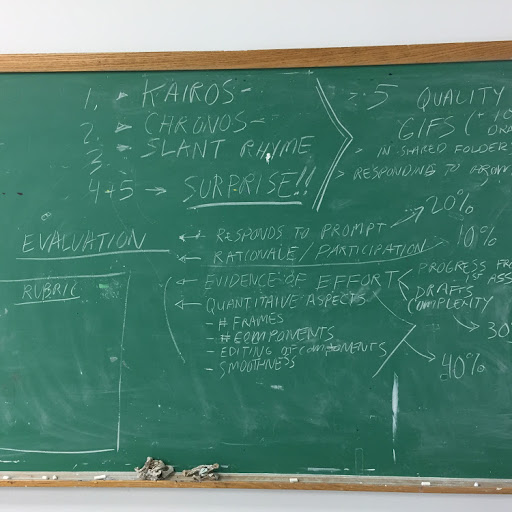 1. → KAIROS -
2. → CHRONOS -
3. → SLANT RHYME
4+5 → SURPRISE!!
> 5 QUALITY
GIFS (
> IN SHARED FOLDER
> RESPONDING TO
EVALUATION
← RESPONDS TO PROMPT → 20%
← RATIONALE/PARTICIPATION → 10%
← EVIDENCE OF EFFORT < PROGRESS
DRAFTS
COMPLEXITY
→ 30
← QUANTITAIVE ASPECTS
- # FRAMES
- # COMPONENTS
- EDITING OF COMPONENTS
- SMOOTHNESS
→ 40%
RUBRIC